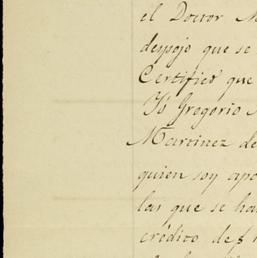 el Doctor M
despojo que se
Certifico que
Yo Gregorio
Martinez de
quien soy apo
las que se ha
crédito de